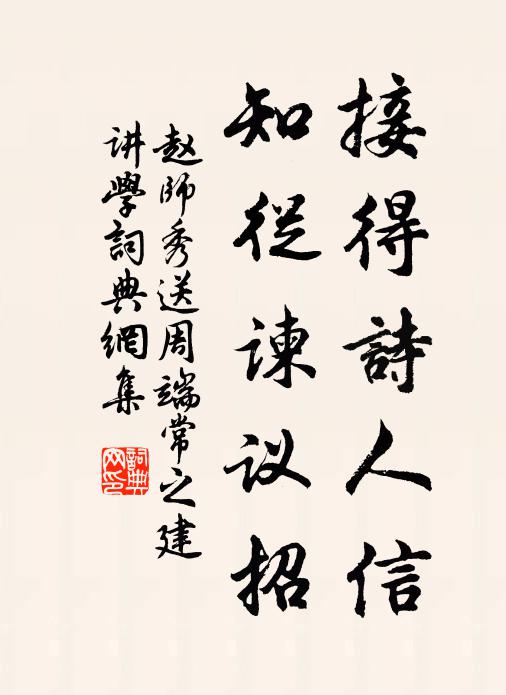 接得詩人信
知從谏议招
赵師秀送周端常之建
讲學詞典網集
詞典网印